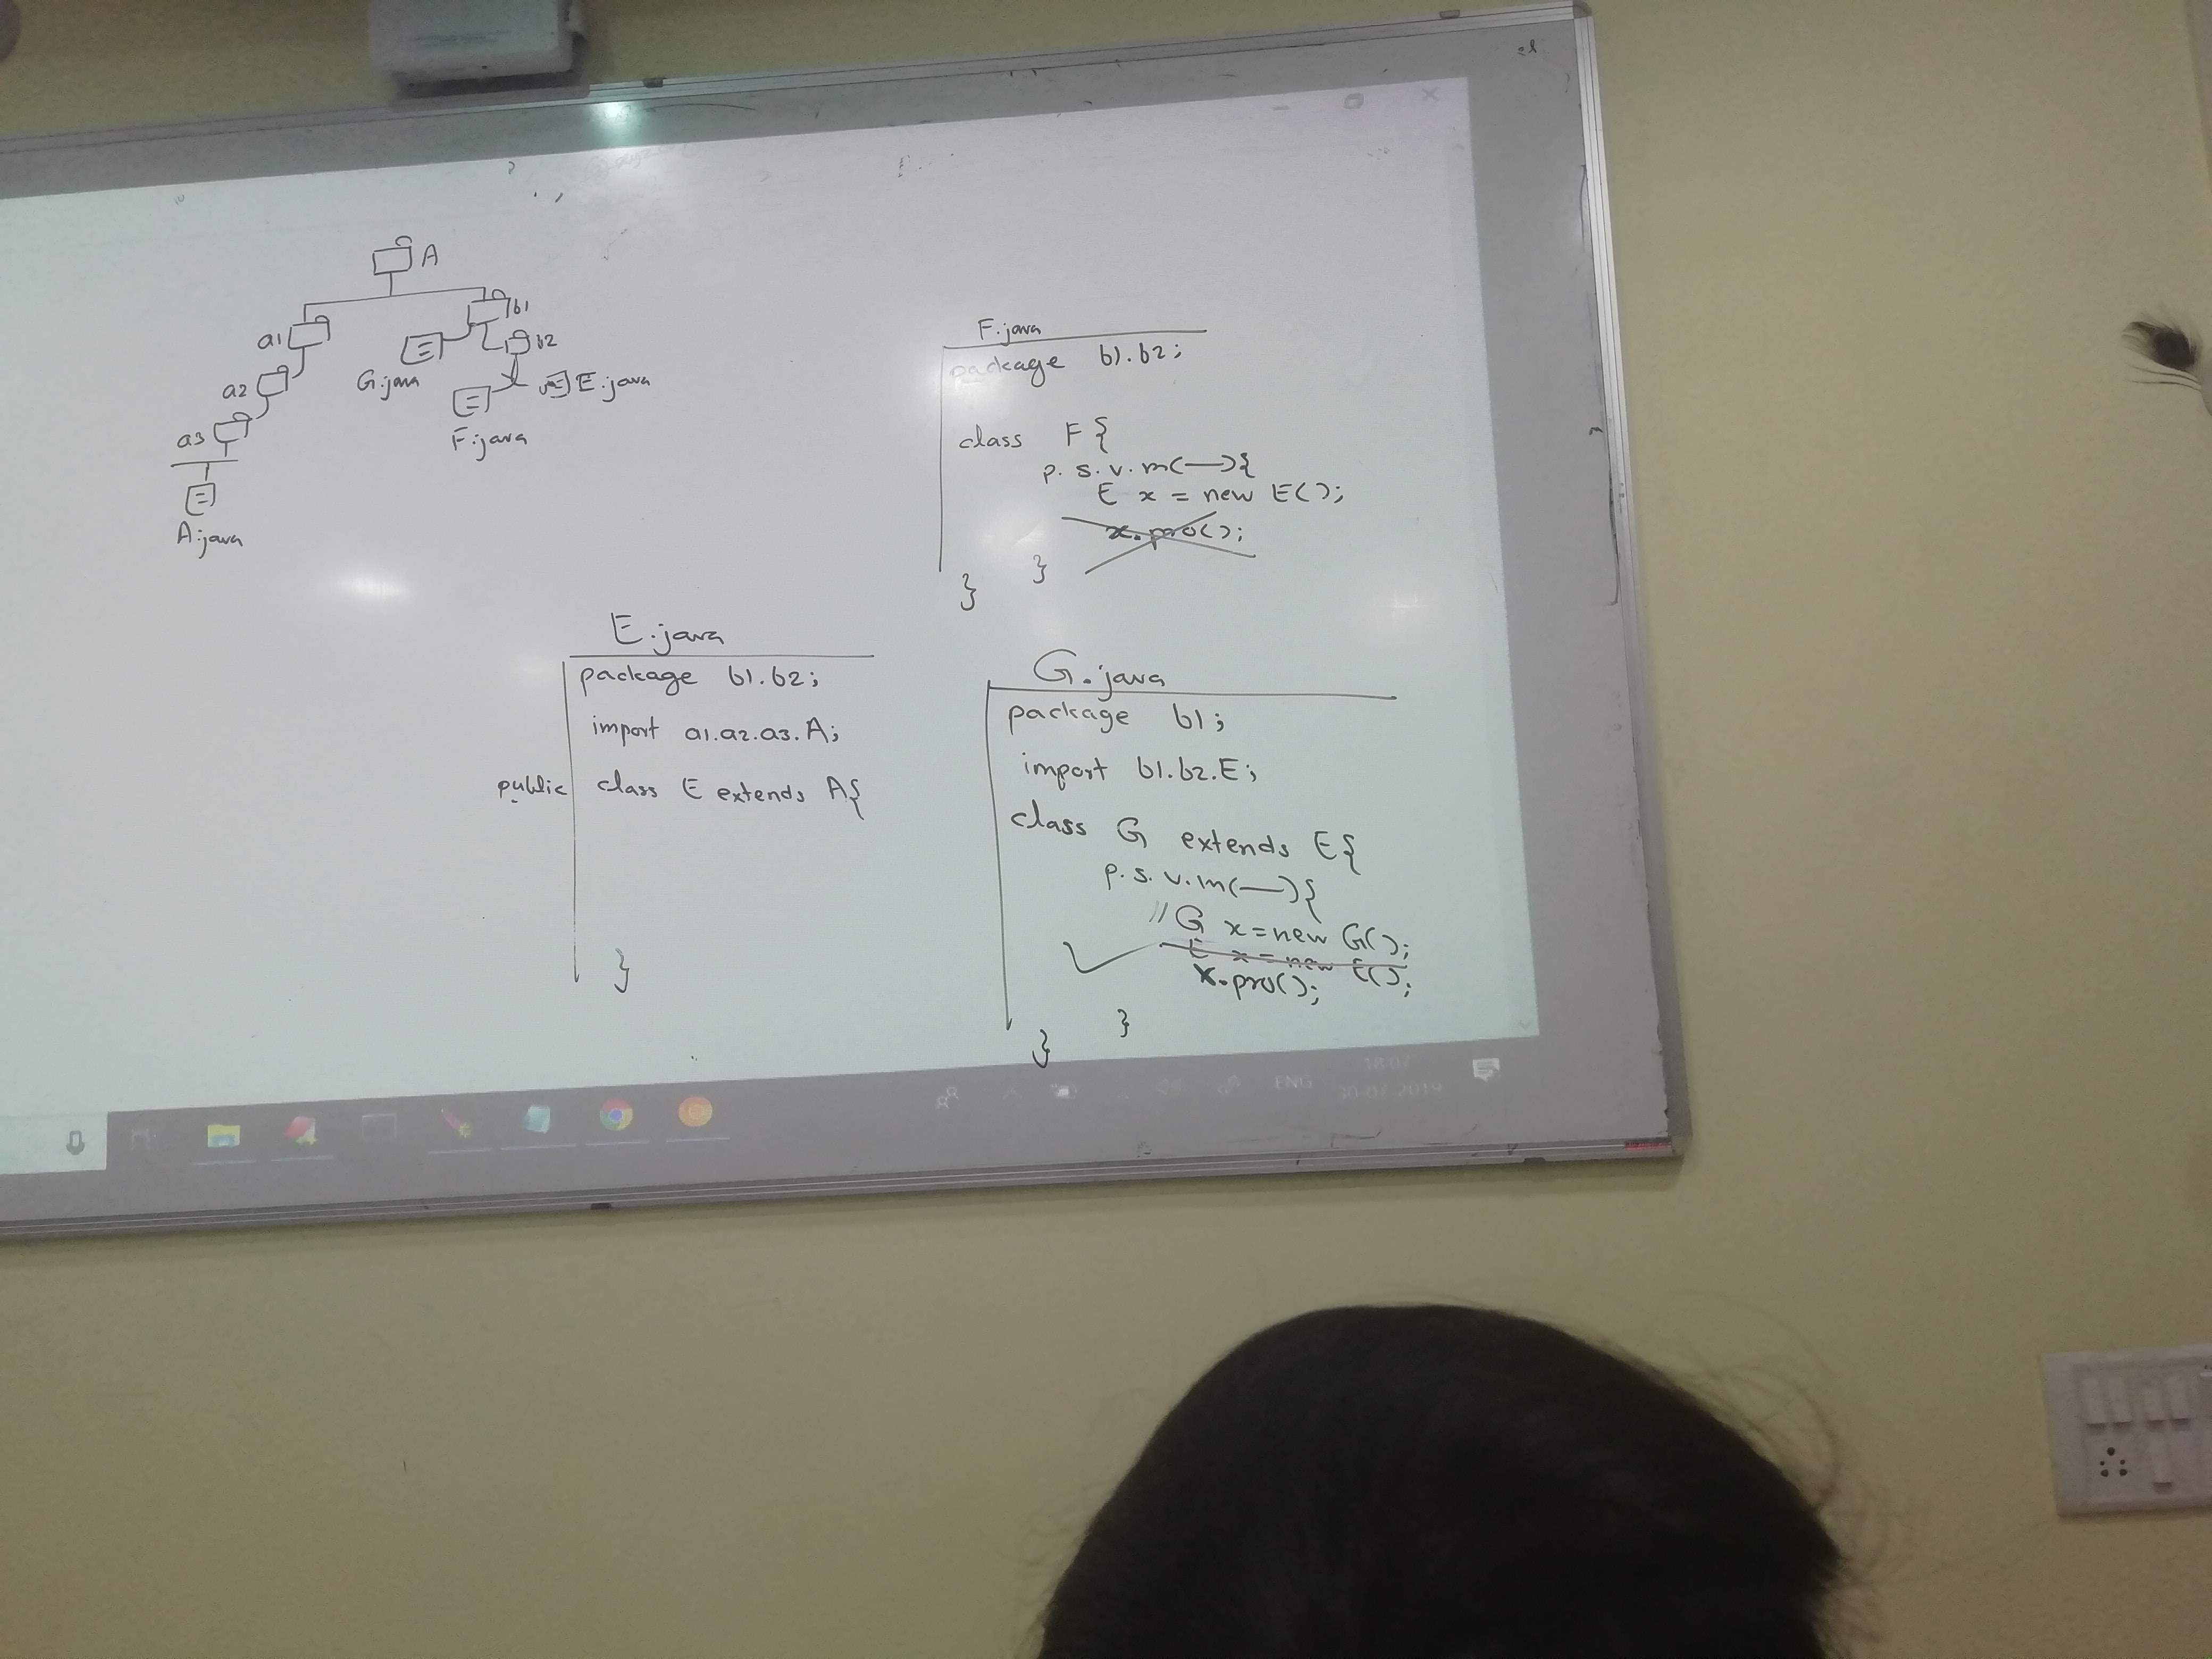 A
a1
b1
b2
a2
G.java
E.java
a3
F.java
A.java
F.java
package b1.b2;
class F{
p.s.v.m(—){
E x = new E();
x.pro();
}
}
E.java
package b1.b2;
import a1.a2.a3.A;
public class E extends A{
}
G.java
package b1;
import b1.b2.E;
class G extends E{
p.s.v.m(—){
//G x=new G();
E x = new E();
x.pro();
}
}
ENG
18:07
30-07-2019